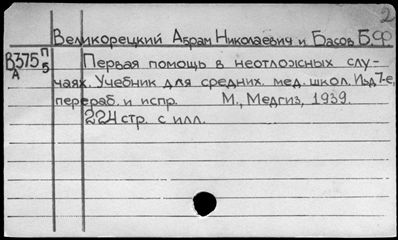 2
Великорецкий Абрам Николаевич и Басов Б.Ф.
В375 П Первая помощь в неотложных слу-
А 5 чаях. Учебник для средних мед. школ. Изд 7-е,
перераб. и испр. М., Медгиз, 1939.
224 стр. с илл.